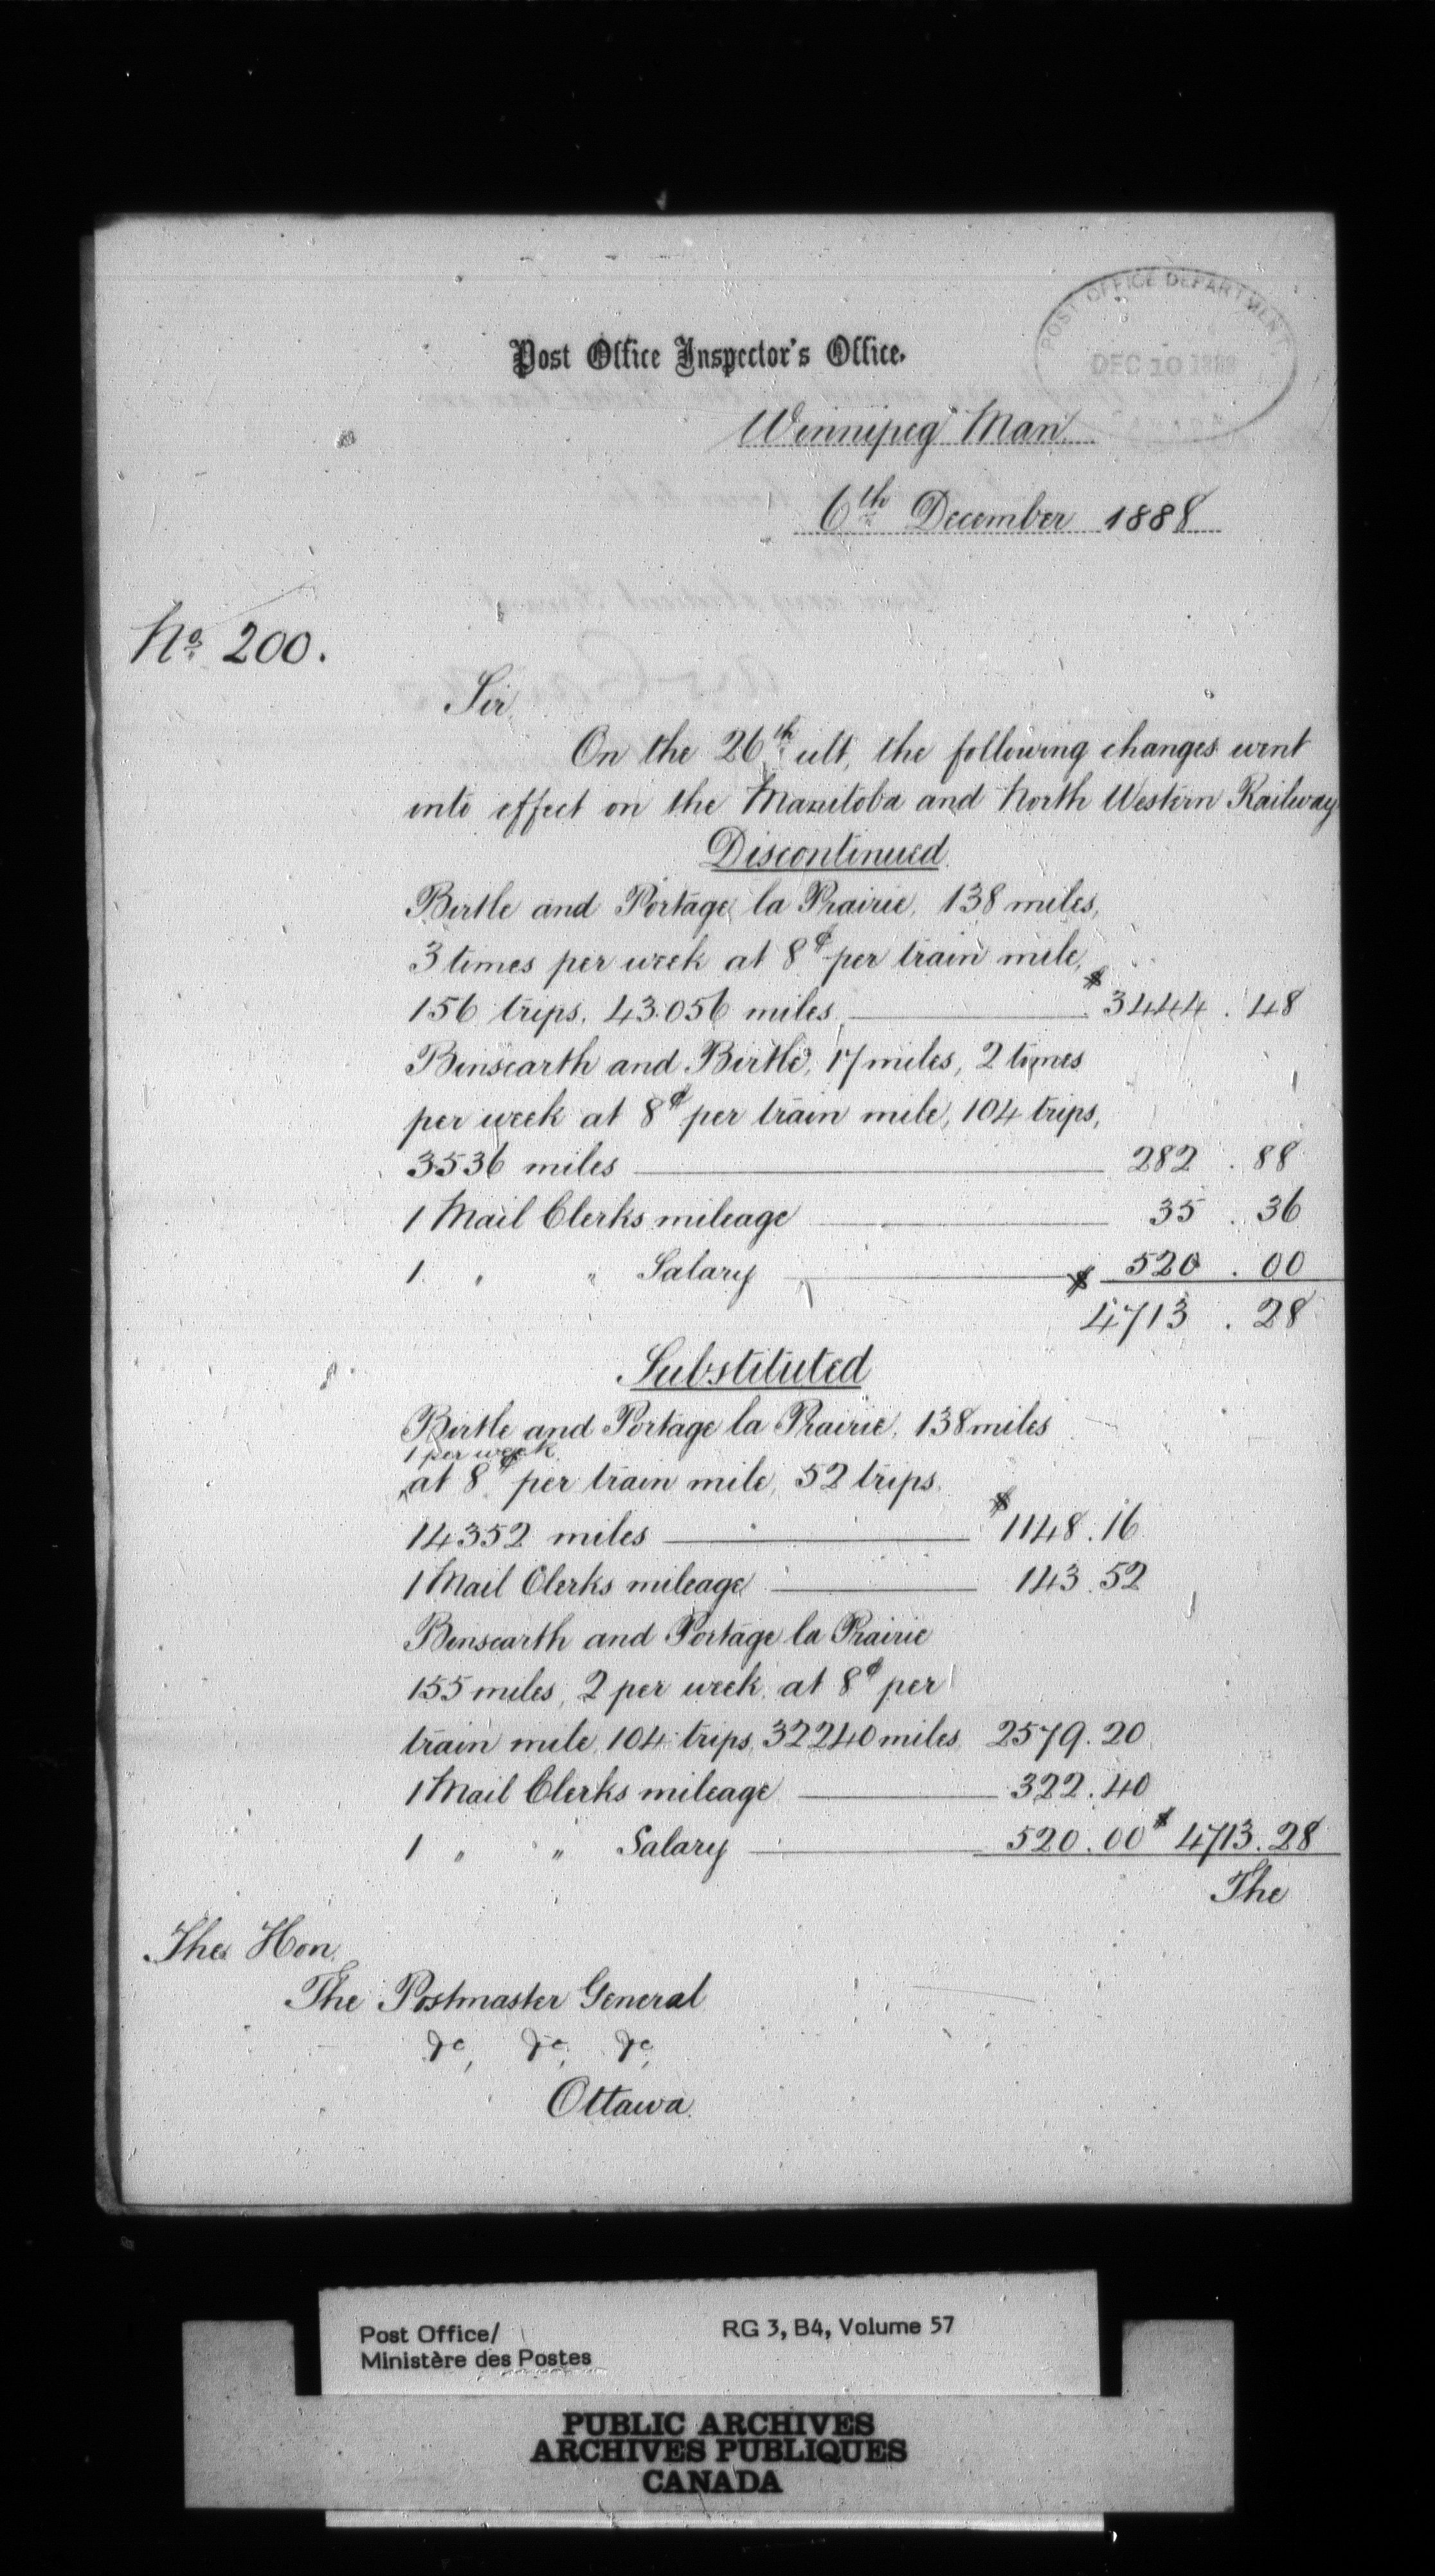 POST OFFICE DEPARTMENT
DEC 10 1888
Post Office Inspector's Office.
Winnipeg Man
6th December 1888
No. 200.
Sir
On the 26th ult, the following changes went
into effect on the Manitoba and North Western Railway
Discontinued
Birtle and Portage la Prairie, 138 miles,
3 times per week at 8¢ per train mile,
156 trips, 43.056 miles, $3444.48
Binscarth and Birtle, 17 miles, 2 times
per week at 8¢ per train mile, 104 trips,
3536 miles 282.88
1 Mail Clerks mileage 35.36
1 " " Salary 520.00
$4713.28
Substituted
Birtle and Portage la Prairie, 138 miles
1 per week
at 8¢ per train mile, 52 trips.
14352 miles $1148.16
1 Mail Clerks mileage 143.52
Binscarth and Portage la Prairie
155 miles, 2 per week, at 8¢ per
train mile, 104 trips, 32240 miles, 2579.20
1 Mail Clerks mileage 322.40
1 " " Salary 520.00 $4713.28
The
The Hon.
The Postmaster General
&c, &c, &c,
Ottawa.
Post Office/ RG 3, B4, Volume 57
Ministère des Postes
PUBLIC ARCHIVES
ARCHIVES PUBLIQUES
CANADA